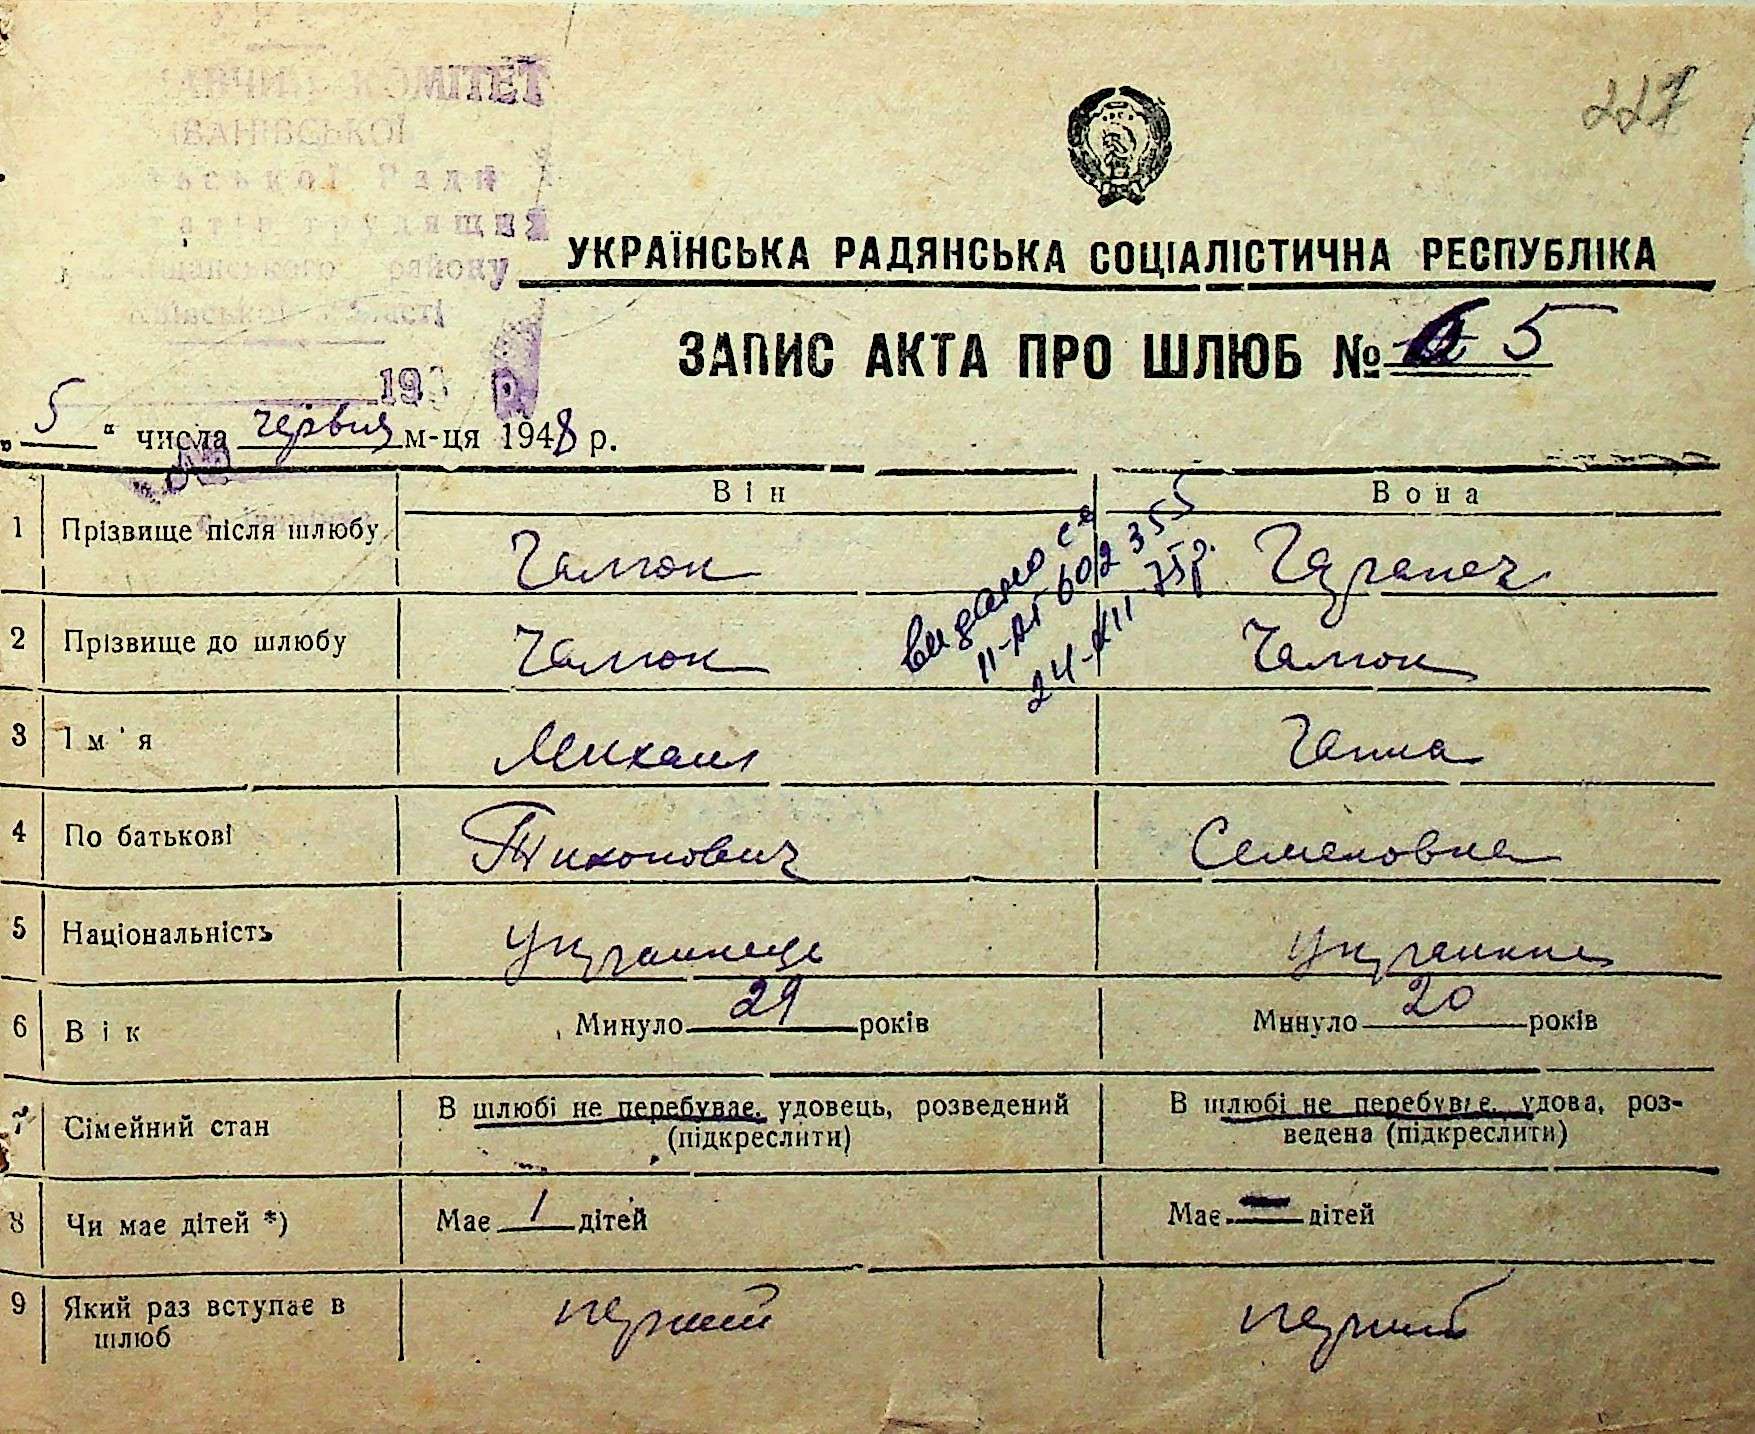 КОМІТЕТ
ІВАНІВСЬКОЇ
Ради
трудящих
району
227
УКРАЇНСЬКА РАДЯНСЬКА СОЦІАЛІСТИЧНА РЕСПУБЛІКА
ЗАПИС АКТА ПРО ШЛЮБ № 5
193 р.
„5“ числа червня м-ця 1948 р.
Він Вона
1 Прізвище після шлюбу
2 Прізвище до шлюбу
видано св
II-АГ 602355
24-XII 75р.
3 Ім'я Михаил Ганна
4 По батькові Тихонович Семеновна
5 Національність украинець украинка
6 Вік Минуло 29 років Минуло 20 років
7 Сімейний стан В шлюбі не перебуває, удовець, розведений (підкреслити) В шлюбі не перебуває, удова, роз-
ведена (підкреслити)
8 Чи має дітей *) Має 1 дітей Має — дітей
9 Який раз вступає в шлюб перший перший